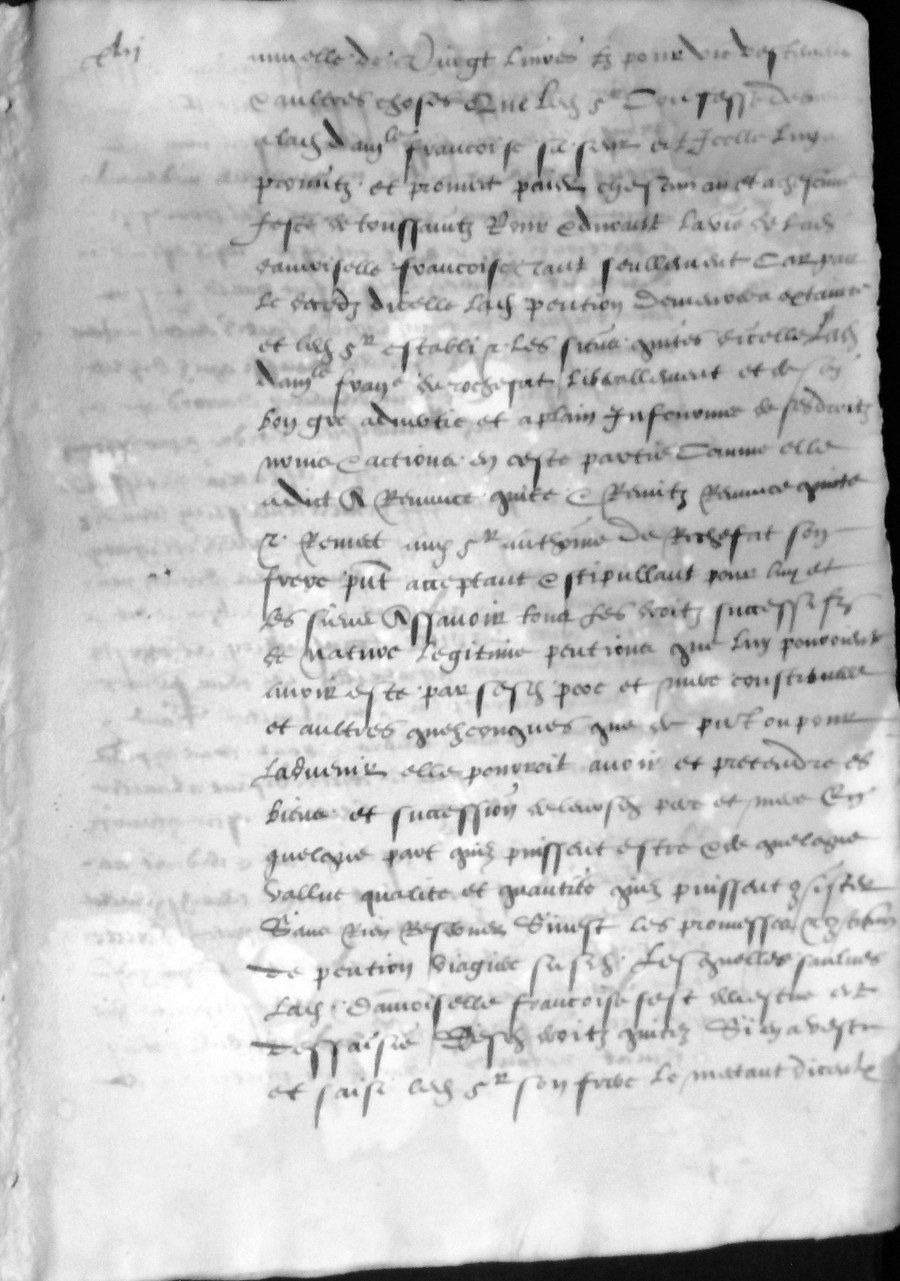 xvi
nuelle de vingt livres tz pour
et aultres choses Que led sr
a lad damle francoise sa seur et Icelle luy a
promitz et promect paier chescun an et a chescune
feste de toussainctz Pour et durant la vie de lad
damoiselle francoise tant seullement Car par
le deces dicelle lad pention demeurera extaincte
et led sr estably et les siens quites dicelle Lad
damle frane de rochefort liberallement et de son
bon gre advertie et a plain Informee de ses droictz
noms et actions en ceste partie Comme elle
a dict A Renunce quite et Remitz Renunce quite
et Remect aud sr anthoine de Rochefort son
frere pnt acceptant et stipullant pour luy et
les siens Assavoir tous ses droitz successifz
de nature legitime pentions que luy pouvoient
avoir este par sesd pere et mere constitues
et aultres quelzconques que de pnt ou pour
ladvenir elle pourroit avoir et pretendre es
biens et succession de leursd pere et mere En
quelque part quilz puissent estre et de quelque
valluc qualite et quantite quilz puissent gsister
Sans Rien Reserver Sinest les promesses
de pention viagiere susd Lesquelles saulves
Lad damoiselle francoise sest devestue et
dessaisie Desd droitz quictez Et en a vestu
et saisi led sr son frere le metant diceulx